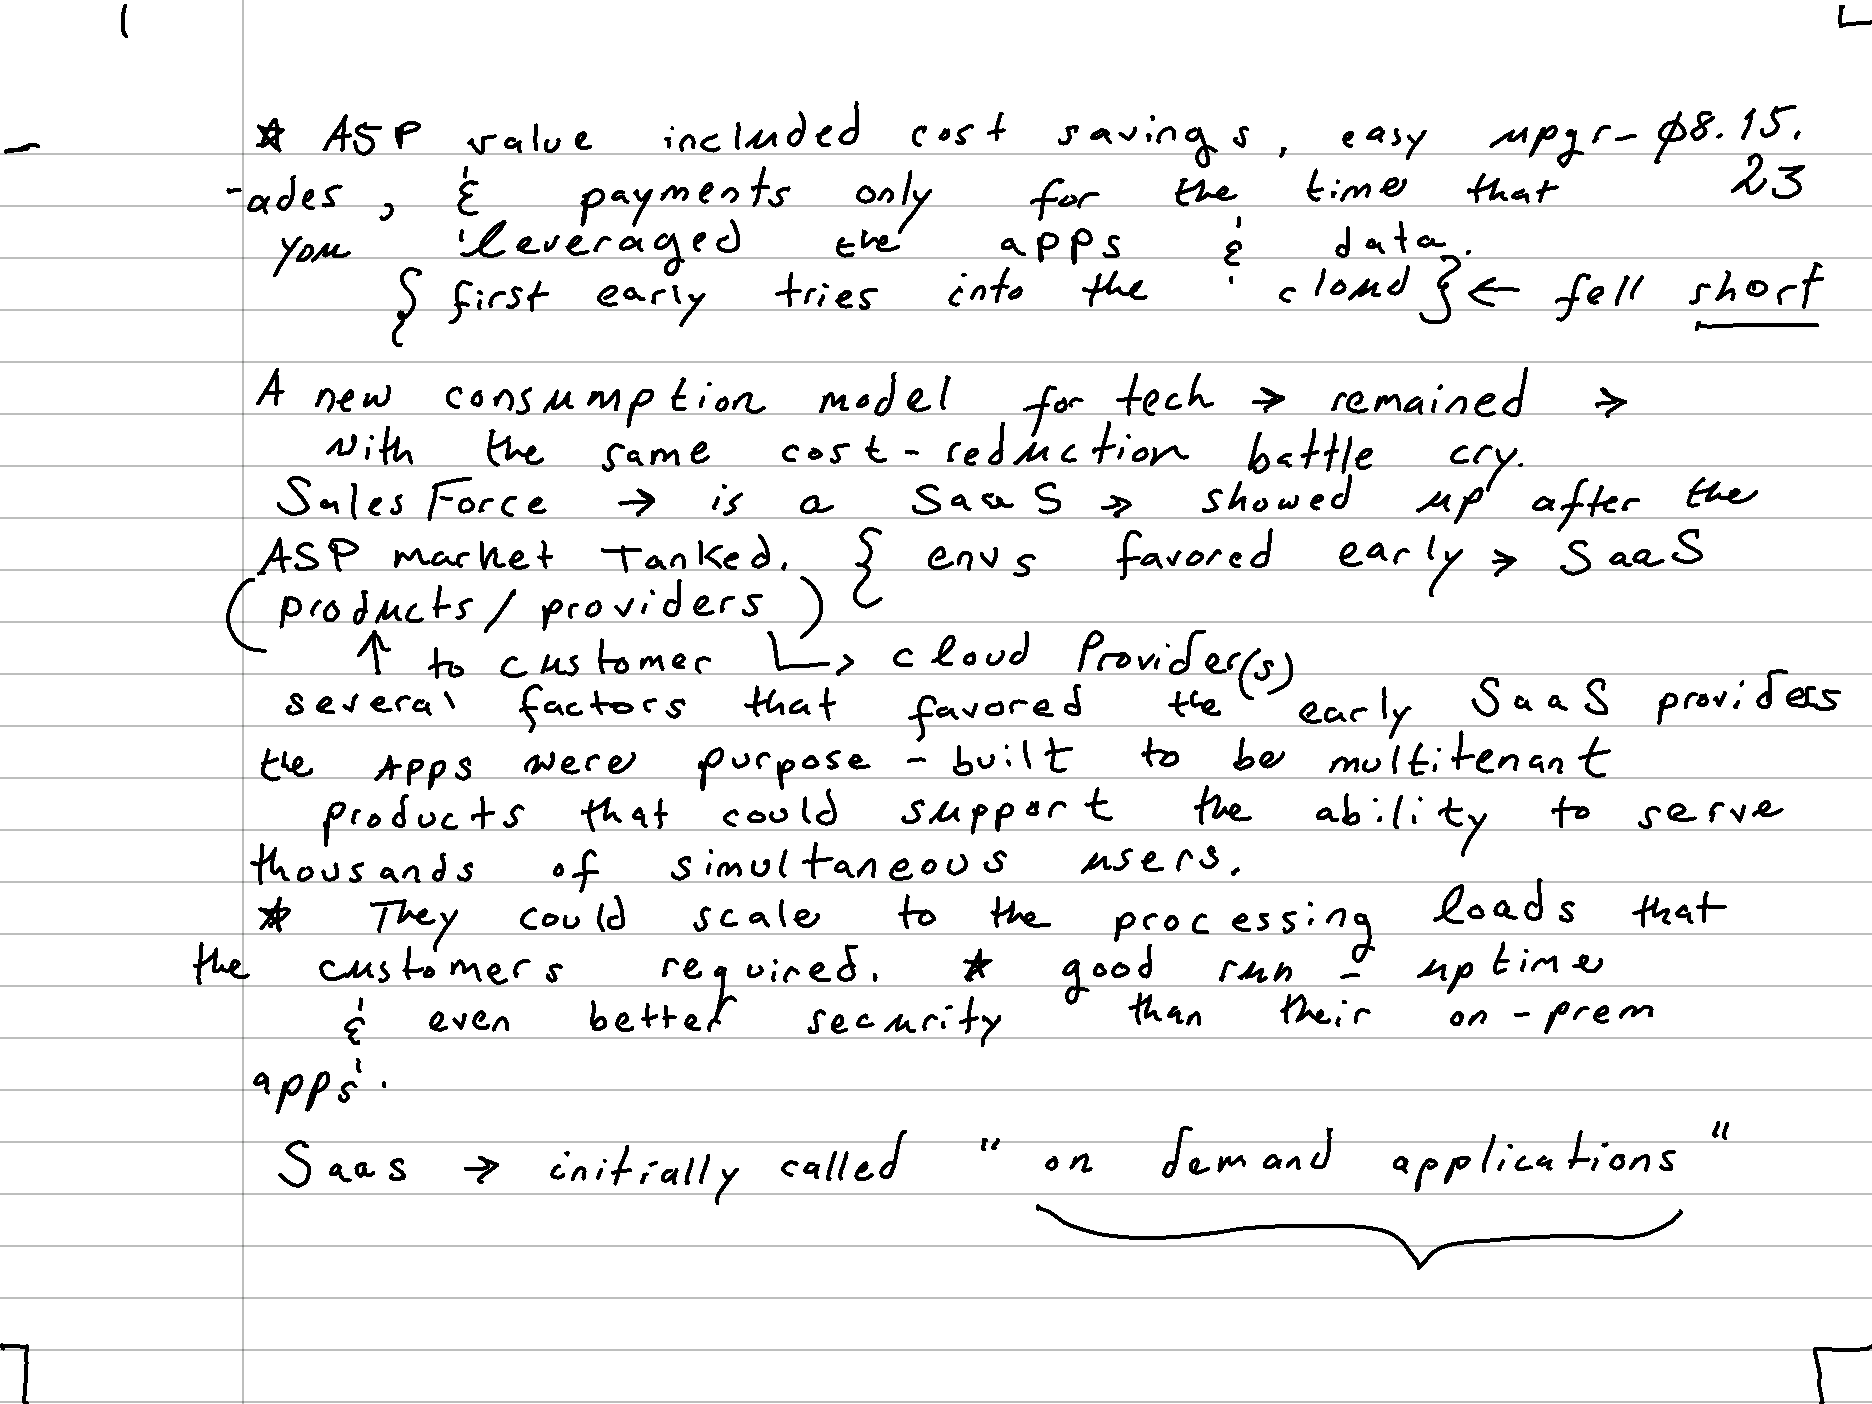 ☆ ASP value included cost savings, easy upgr- ø8.15.
-ades, & payments only for the time that 23
you leveraged the apps & data.
{ first early tries into the cloud } ← fell short
A new consumption model for tech → remained →
with the same cost-reduction battle cry.
SalesForce → is a SaaS » showed up after the
ASP market Tanked. { envs favored early → SaaS
(products/providers)
↑ to customer ↳ cloud Provider(s)
several factors that favored the early SaaS providers
the APPs were purpose-built to be multitenant
products that could support the ability to serve
thousands of simultaneous users.
☆ They could scale to the processing loads that
the customers required. ☆ good run - uptime
& even better security than their on-prem
apps.
Saas → initially called "on demand applications"